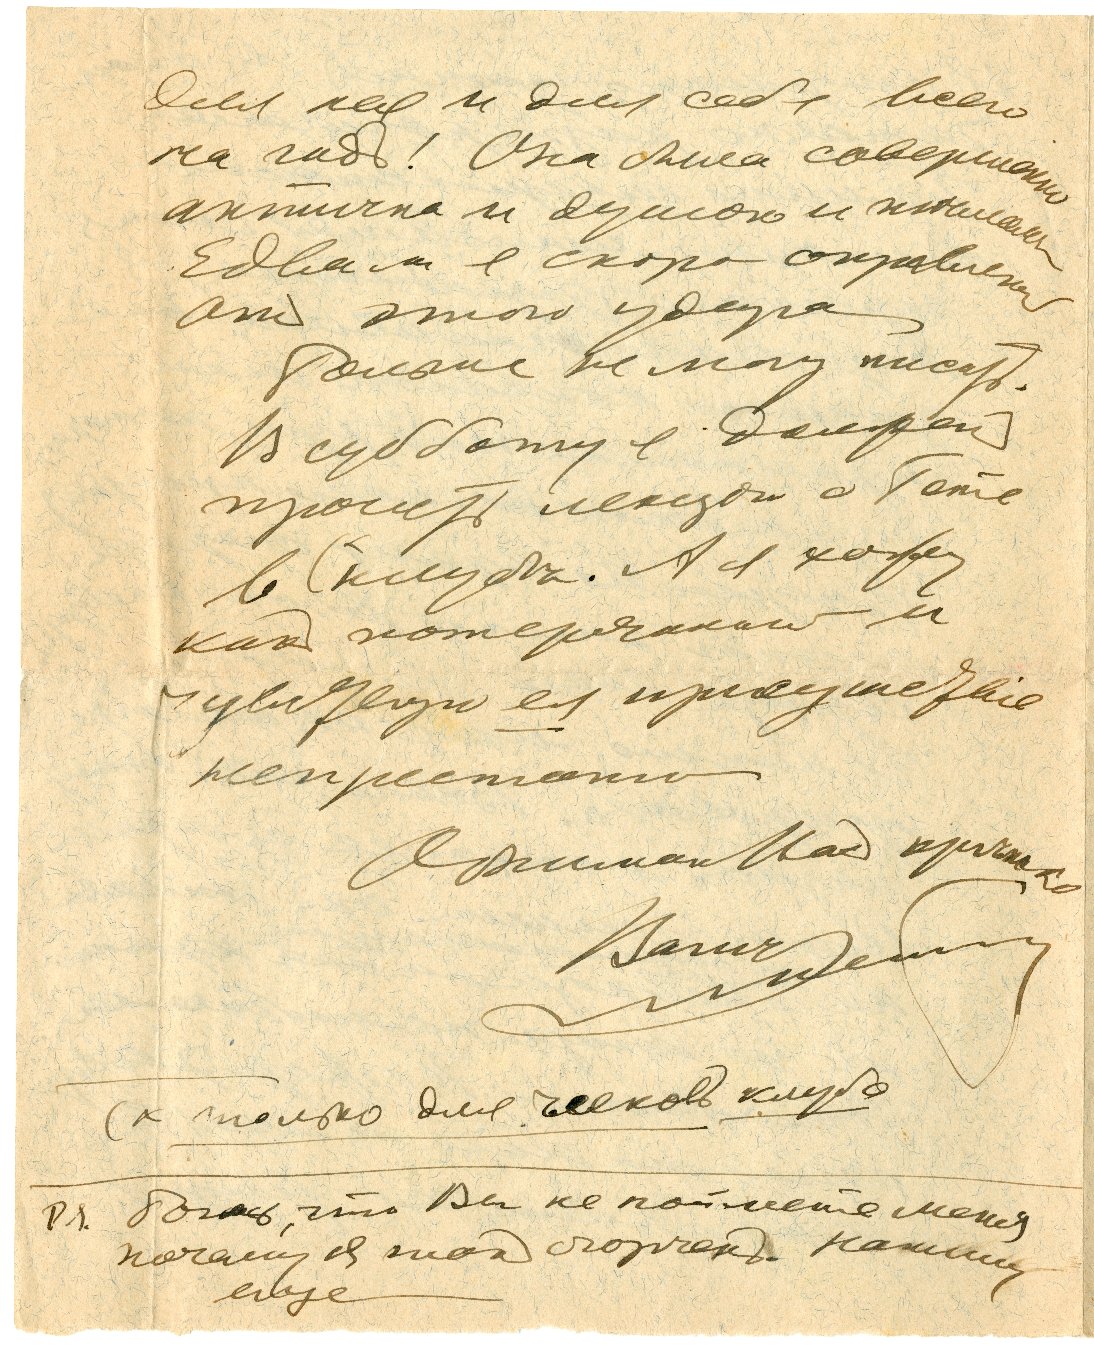 для нея и для себя всего
на гадъ! Она была совершенно
антична и душою и
Едва ли я скоро оправлюсь
отъ этого удара
Больше не могу писать.
В субботу я долженъ
прочесть лекцiю о Гете
в (* клубѣ. А я хожу
какъ потерянный и
чувствую ея присутствiе
непрестанно
Обнимаю Васъ крѣпко
Вашъ
(* только для членовъ клуба
P.S. Боюсь, что Вы не поймете меня
почему я такъ огорченъ. Напишу
еще